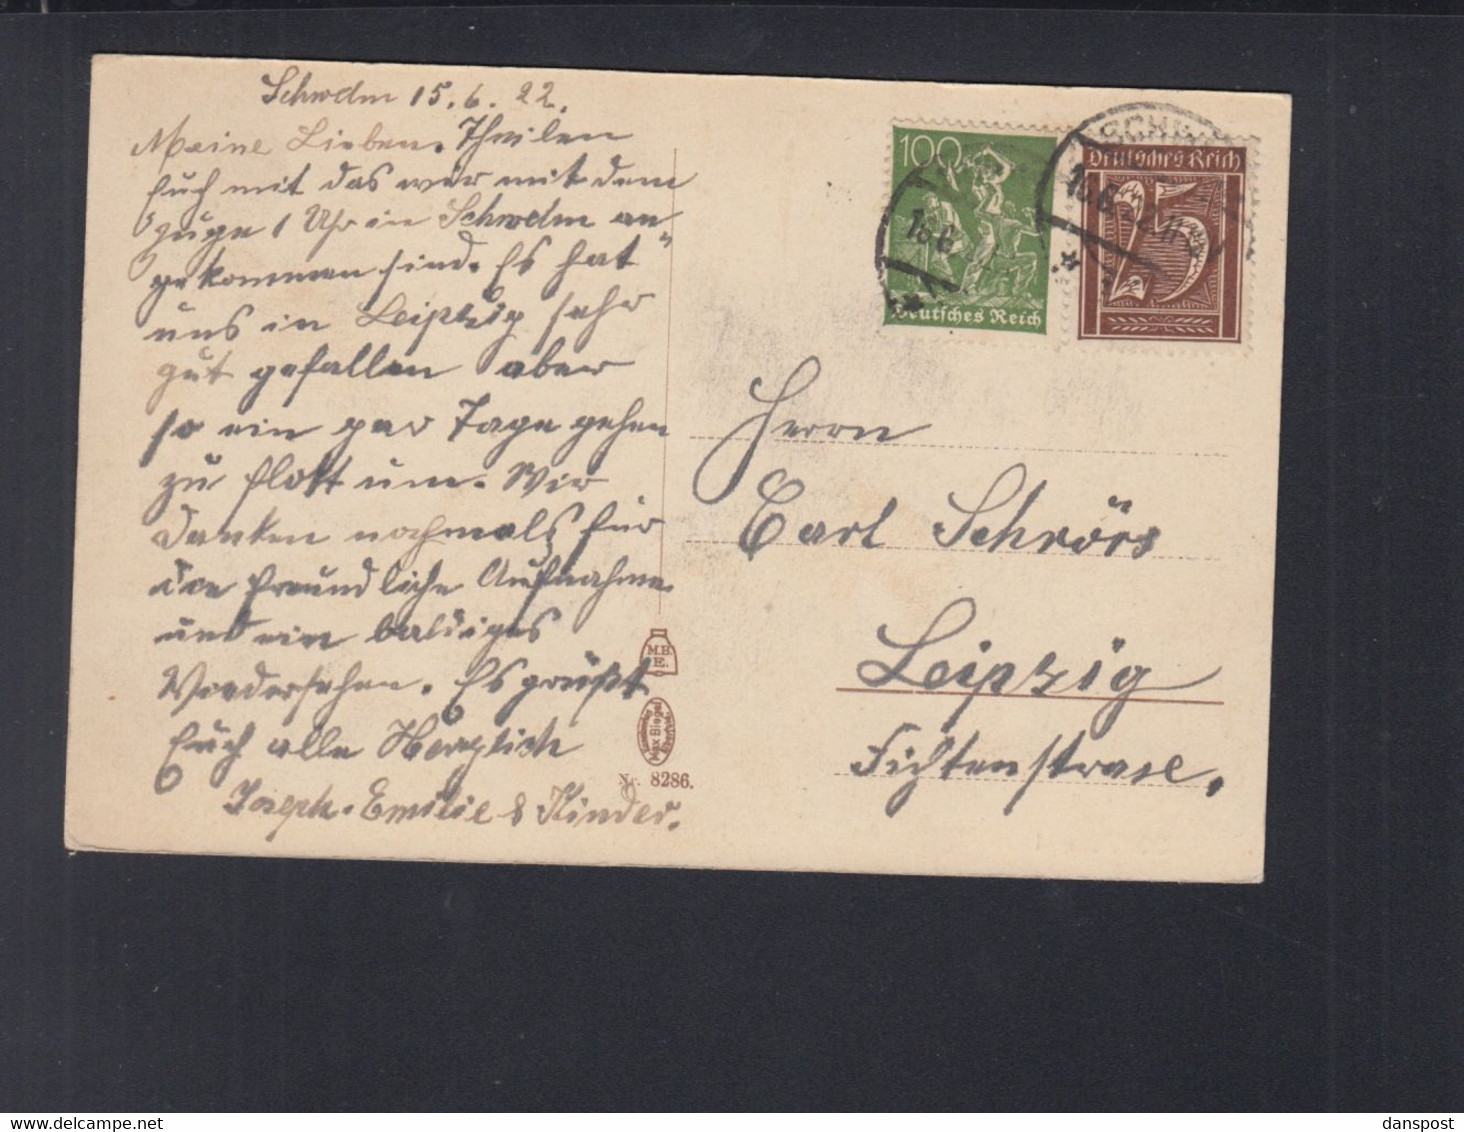 Schwelm 15.6.22.
Meine Lieben. Theilen
Euch mit das wir mit dem
Zuge 1 Uhr in Schwelm an„
gekommen sind. Es hat
uns in Leipzig sehr
gut gefallen aber
so ein par Tage gehen
zu flott um. Wir
danken nochmals für
die freundliche Aufnahme
und ein baldiges
Wiedersehen. Es grüßt
Euch alle Herzlich
Joseph. Emilie & Kinder.
100
Deutsches Reich
16.6
SCHW
16.6.22.11
Deutsches Reich
25
Herrn
Carl Schrörs
Leipzig
Fichtenstrase.
M.B.
E.
Max Biegel
Nr. 8286.
delcampe.net
danspost